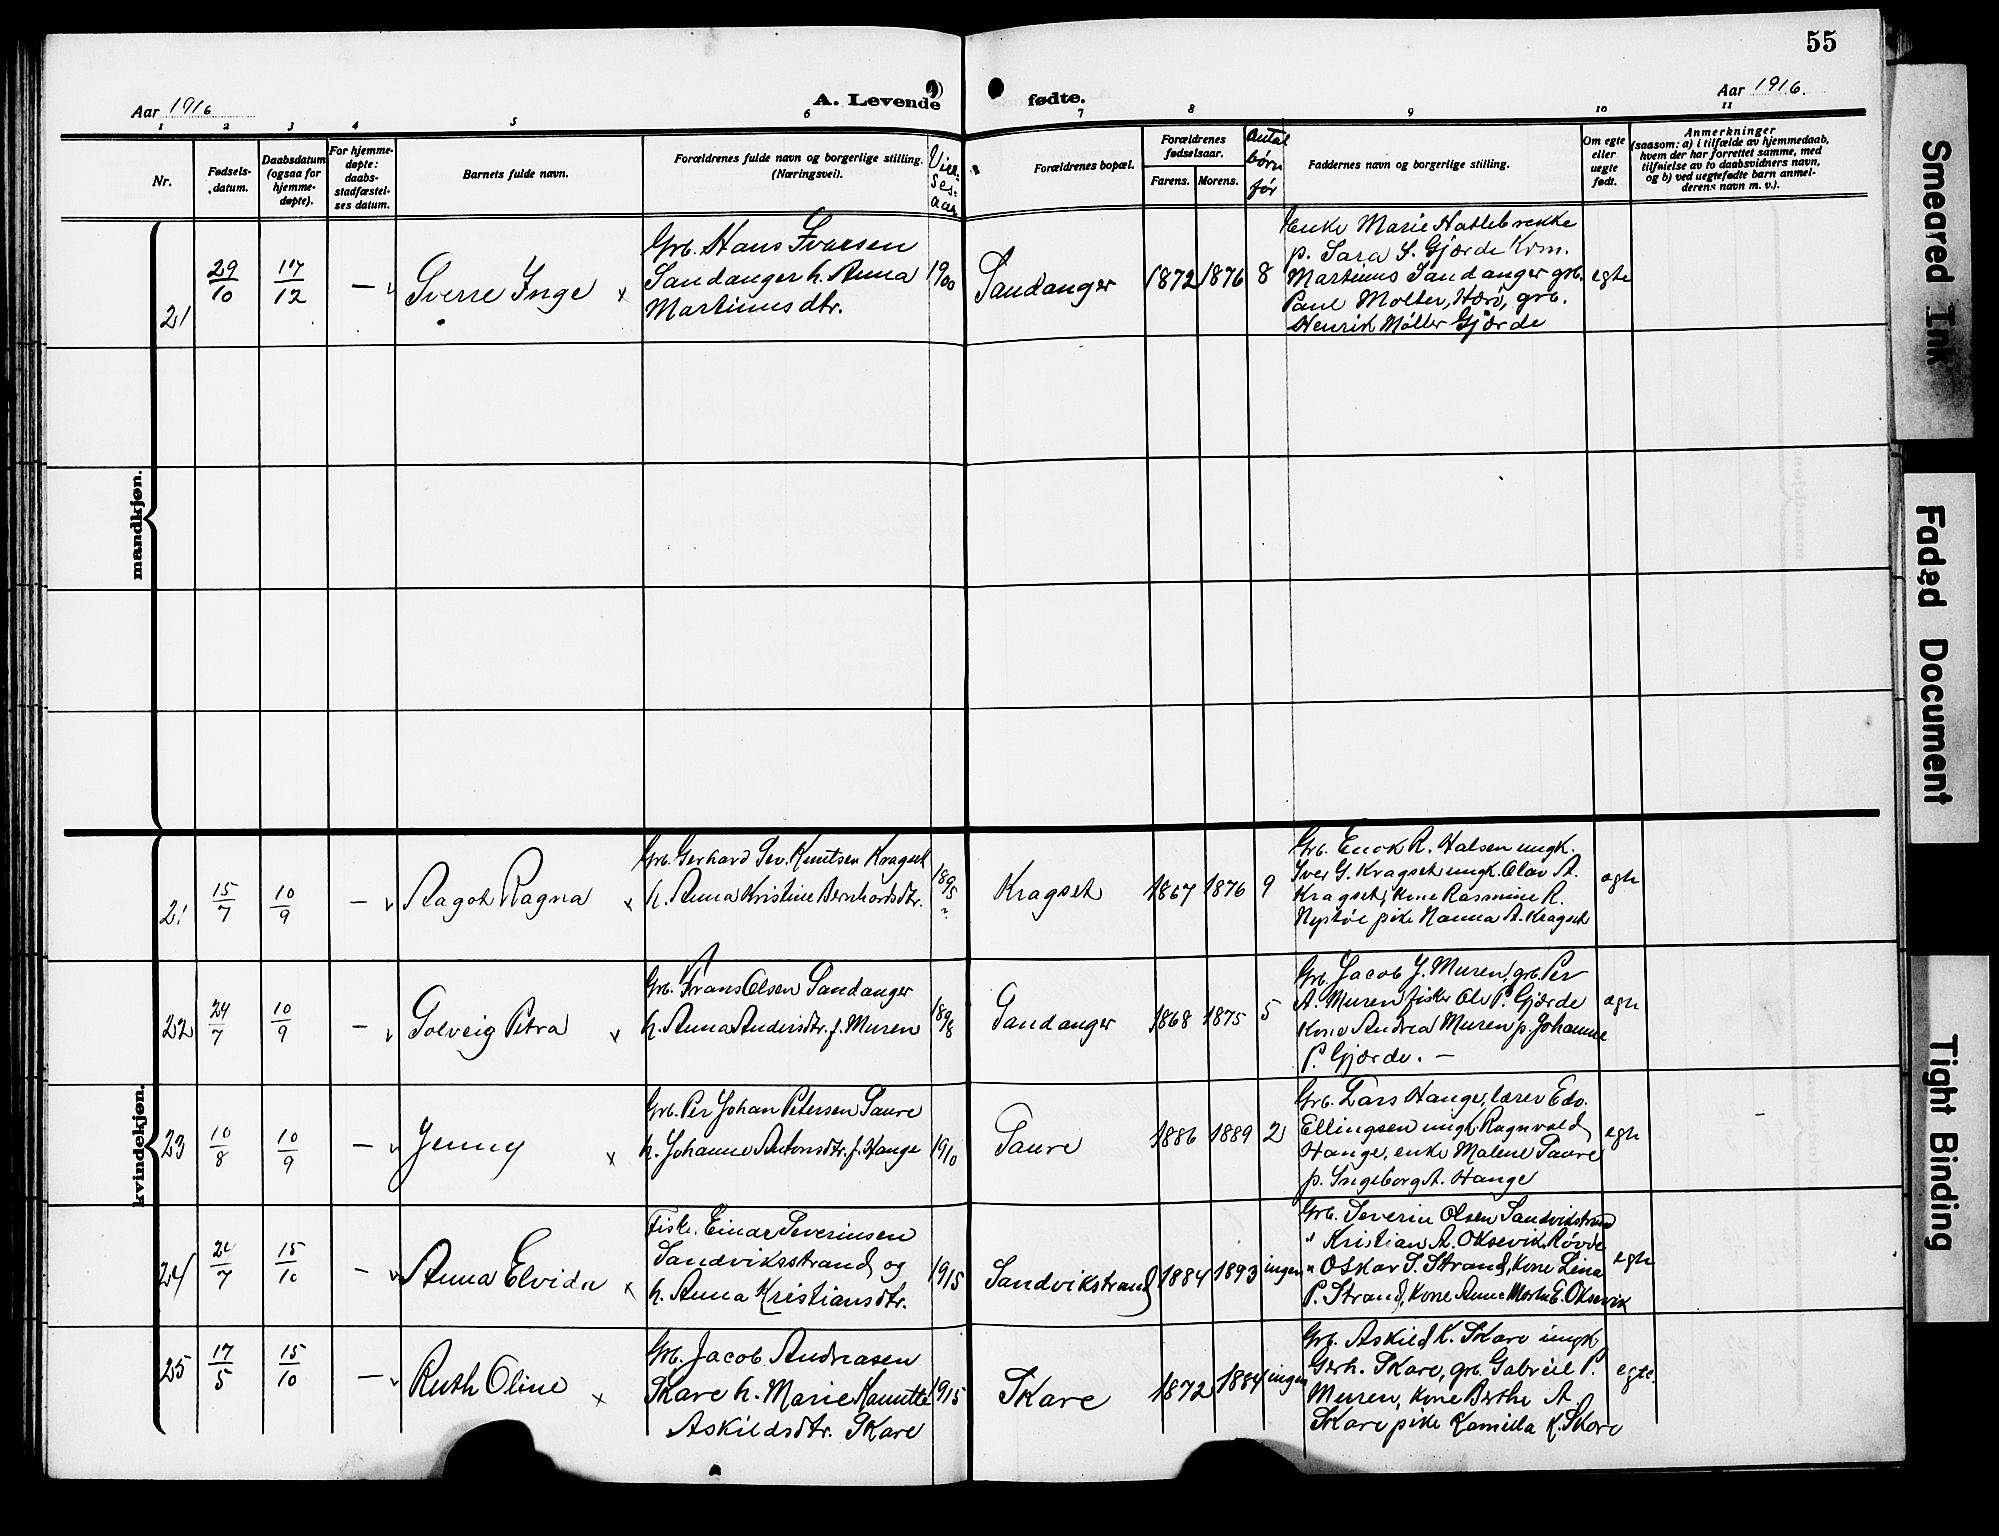 55
Aar 1916
A. Levende
fødte.
Aar 1916.
1 2 3 4 5 6 7 8 9 10 11
Nr.
Fødsels-
datum.
Daabsdatum
(ogsaa for
hjemme-
døpte).
For hjemme-
døpte:
daabs-
stadfæstel-
ses datum.
Barnets fulde navn.
Forældrenes fulde navn og borgerlige stilling.
(Næringsvei).
Viel-
ses-
aar
Forældrenes bopæl.
Forældrenes
fødselsaar.
Farens. Morens.
Antal
børn
før
Faddernes navn og borgerlige stilling.
Om egte
eller
uegte
født.
Anmerkninger
(saasom: a) i tilfælde av hjemmedaab,
hvem der har forrettet samme, med
tilføielse av to daabsvidners navn,
og b) ved uegtefødte barn anmel-
derens navn m. v.).
mandkjøn.
21
29/10
17/12
—
Sverre Inge
Grb. Hans Ivarsen
Sandanger h. Anna
Martinusdtr.
1900
Sandanger
1872 1876 8
Enke Marie Hatlebrekke
p. Sara S. Gjærde Kvm.
Martinus Sandanger grb.
Paul Molter, Herö, grb.
Henrik Møller Gjærde
egte
kvindekjøn.
21
15/7
10/9
—
Aagot Ragna
Grb. Gerhard Sev. Knutsen Kragset
h. Anna Kristine Bernhardsdtr.
1895
?
Kragset
1867 1876 9
Grb. Enok R. Halsen ungk.
Iver G. Kragset ungk. Olav A.
Kragset, Kone Rasmine R.
Nystöl pike Nanna A. Kragset
egte
22
24/7
10/9
—
Solveig Petra
Grb. Frans Olsen Sandanger
h. Anna Andersdtr. f. Muren
1898
Sandanger
1868 1875 5
Grb. Jacob J. Muren, grb. Per
A. Muren fisker Ole P. Gjærde
Kone Andrea Muren p. Johanne
P. Gjærde. —
egte
23
10/8
10/9
—
Jenny
Grb. Per Johan Petersen Saure
h. Johanne Antonsdtr. f. Hauge
1910
Saure
1886 1889 2
Grb. Lars Hauge, lærer Edv.
Ellingsen ungk. Ragnvald
Hauge, enke Malene Saure
p. Ingeborg A. Hauge
egte
24
24/7
15/10
—
Anna Elvida
Fisk. Einar Severinsen
Sandviksstrand og
h. Anna Kristiansdtr.
1915
Sandvikstrand
1884 1893 ingen
Grb. Severin Olsen Sandvikstrand
" Kristian A. Oksevik, Røvde
" Oskar S. Strand, Kone Lina
P. Strand, Kone Anne Marte E. Oksevik
egte
25
17/5
15/10
—
Ruth Oline
Grb. Jacob Andreasen
Skare h. Marie Kanutte
Askildsdtr. Skare
1915
Skare
1872 1884 ingen
Grb. Askild K. Skare ungk
Gerh. Skare, grb. Gabriel P.
Muren, Kone Berthe A.
Skare pike Kamilla K. Skare
egte.
Smeared Ink
Faded Document
Tight Binding